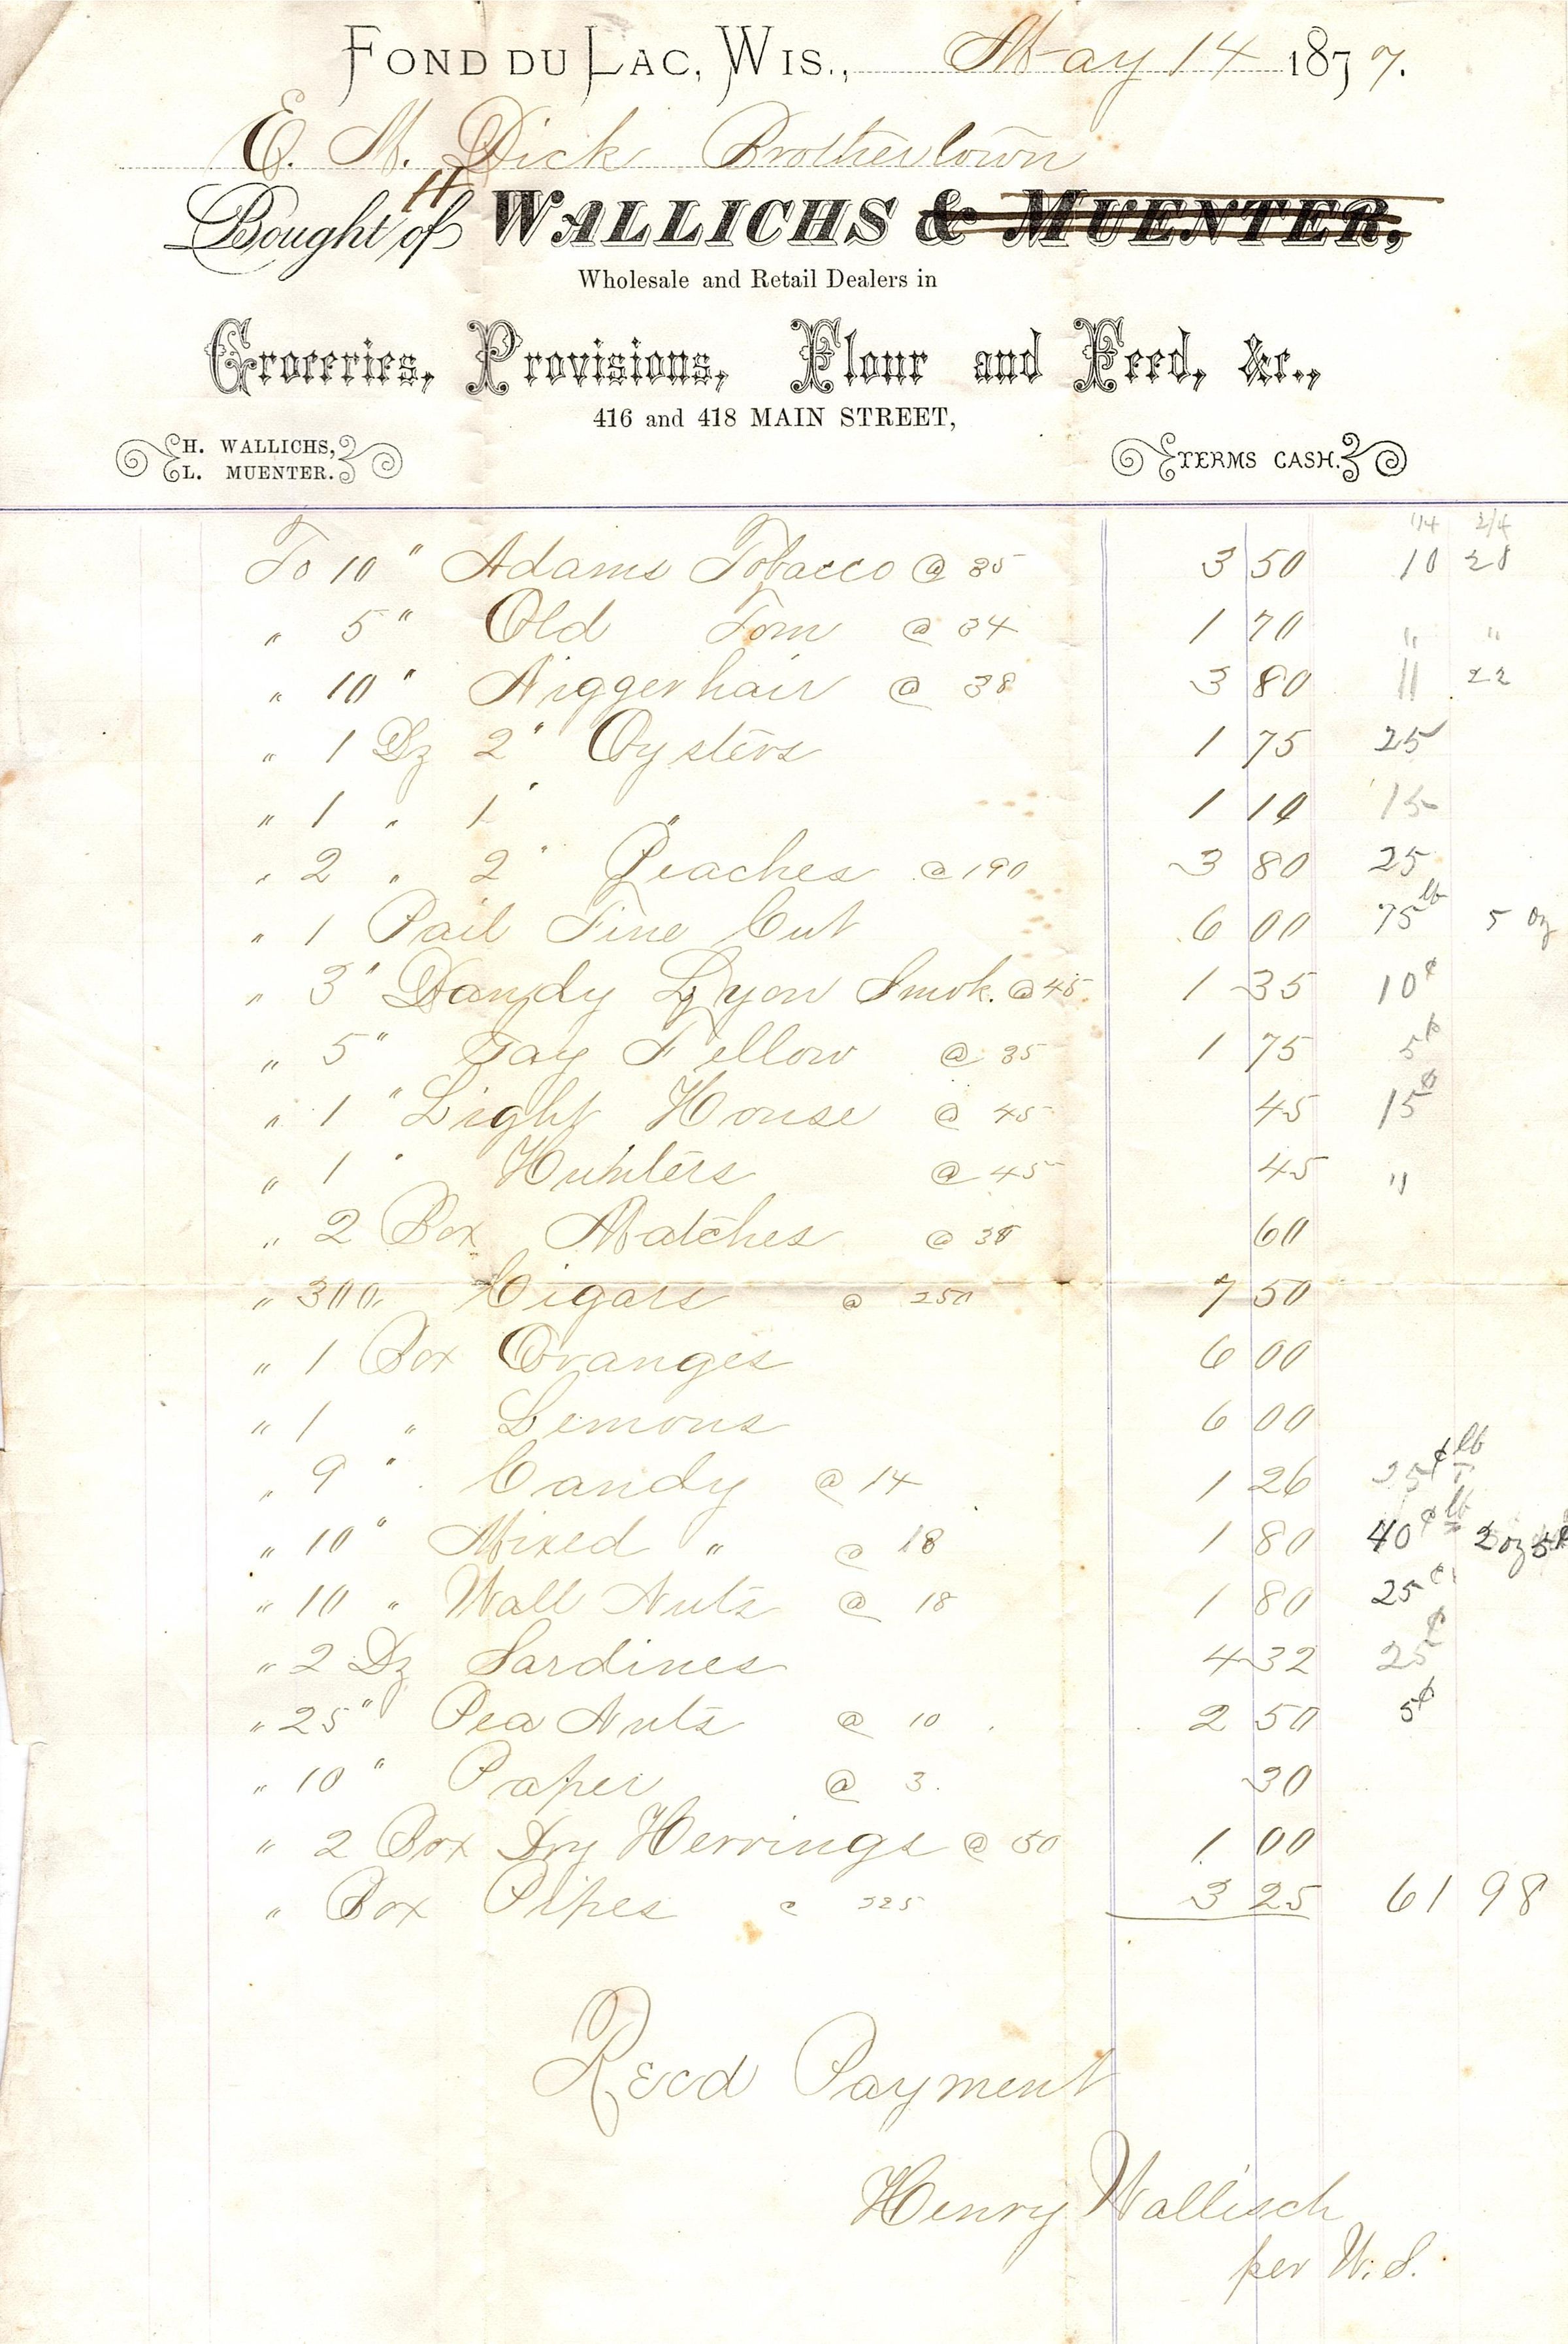 FOND DU LAC, WIS., May 14 1877.
E. M. Dick Brothertown
Bought of H WALLICHS & MUENTER,
Wholesale and Retail Dealers in
Groceries, Provisions, Flour and Feed, &c.,
416 and 418 MAIN STREET,
H. WALLICHS,
L. MUENTER.
TERMS CASH.
1/4 2/4
To 10 " Adams Tobacco @ 35 3 50 10 20
" 5 " Old Tom @ 34 1 70 " "
" 10 " Niggerhair @ 38 3 80 11 22
" 1 Dz 2 " Oysters 1 75 25
" 1 " 1 " " 1 10 15
" 2 " 2 " Peaches @ 190 3 80 25
" 1 Pail Fine Cut 6 00 75 lb 5 oz
" 3 " Dandy Lyon Smok. @ 45 1 35 10¢
" 5 " Gay Fellow @ 35 1 75 5¢
" 1 " Light House @ 45 45 15¢
" 1 " Hunters @ 45 45 "
" 2 Box Matches @ 30 60
" 300 Cigars @ 250 7 50
" 1 Box Oranges 6 00
" 1 " Lemons 6 00
" 9 " Candy @ 14 1 26 25¢ lb
" 10 " Mixed " @ 18 1 80 40¢ lb 2 oz 5¢
" 10 " Wall Nuts @ 18 1 80 25¢
" 2 Dz Sardines 4 32 25¢
" 25 " Pea Nuts @ 10 2 50 5¢
" 10 " Paper @ 3. 30
" 2 Box Dry Herrings @ 50 1 00
" Box Pipes @ 325 3 25 61 98
Recd Payment
Henry Wallisch
per W. S.